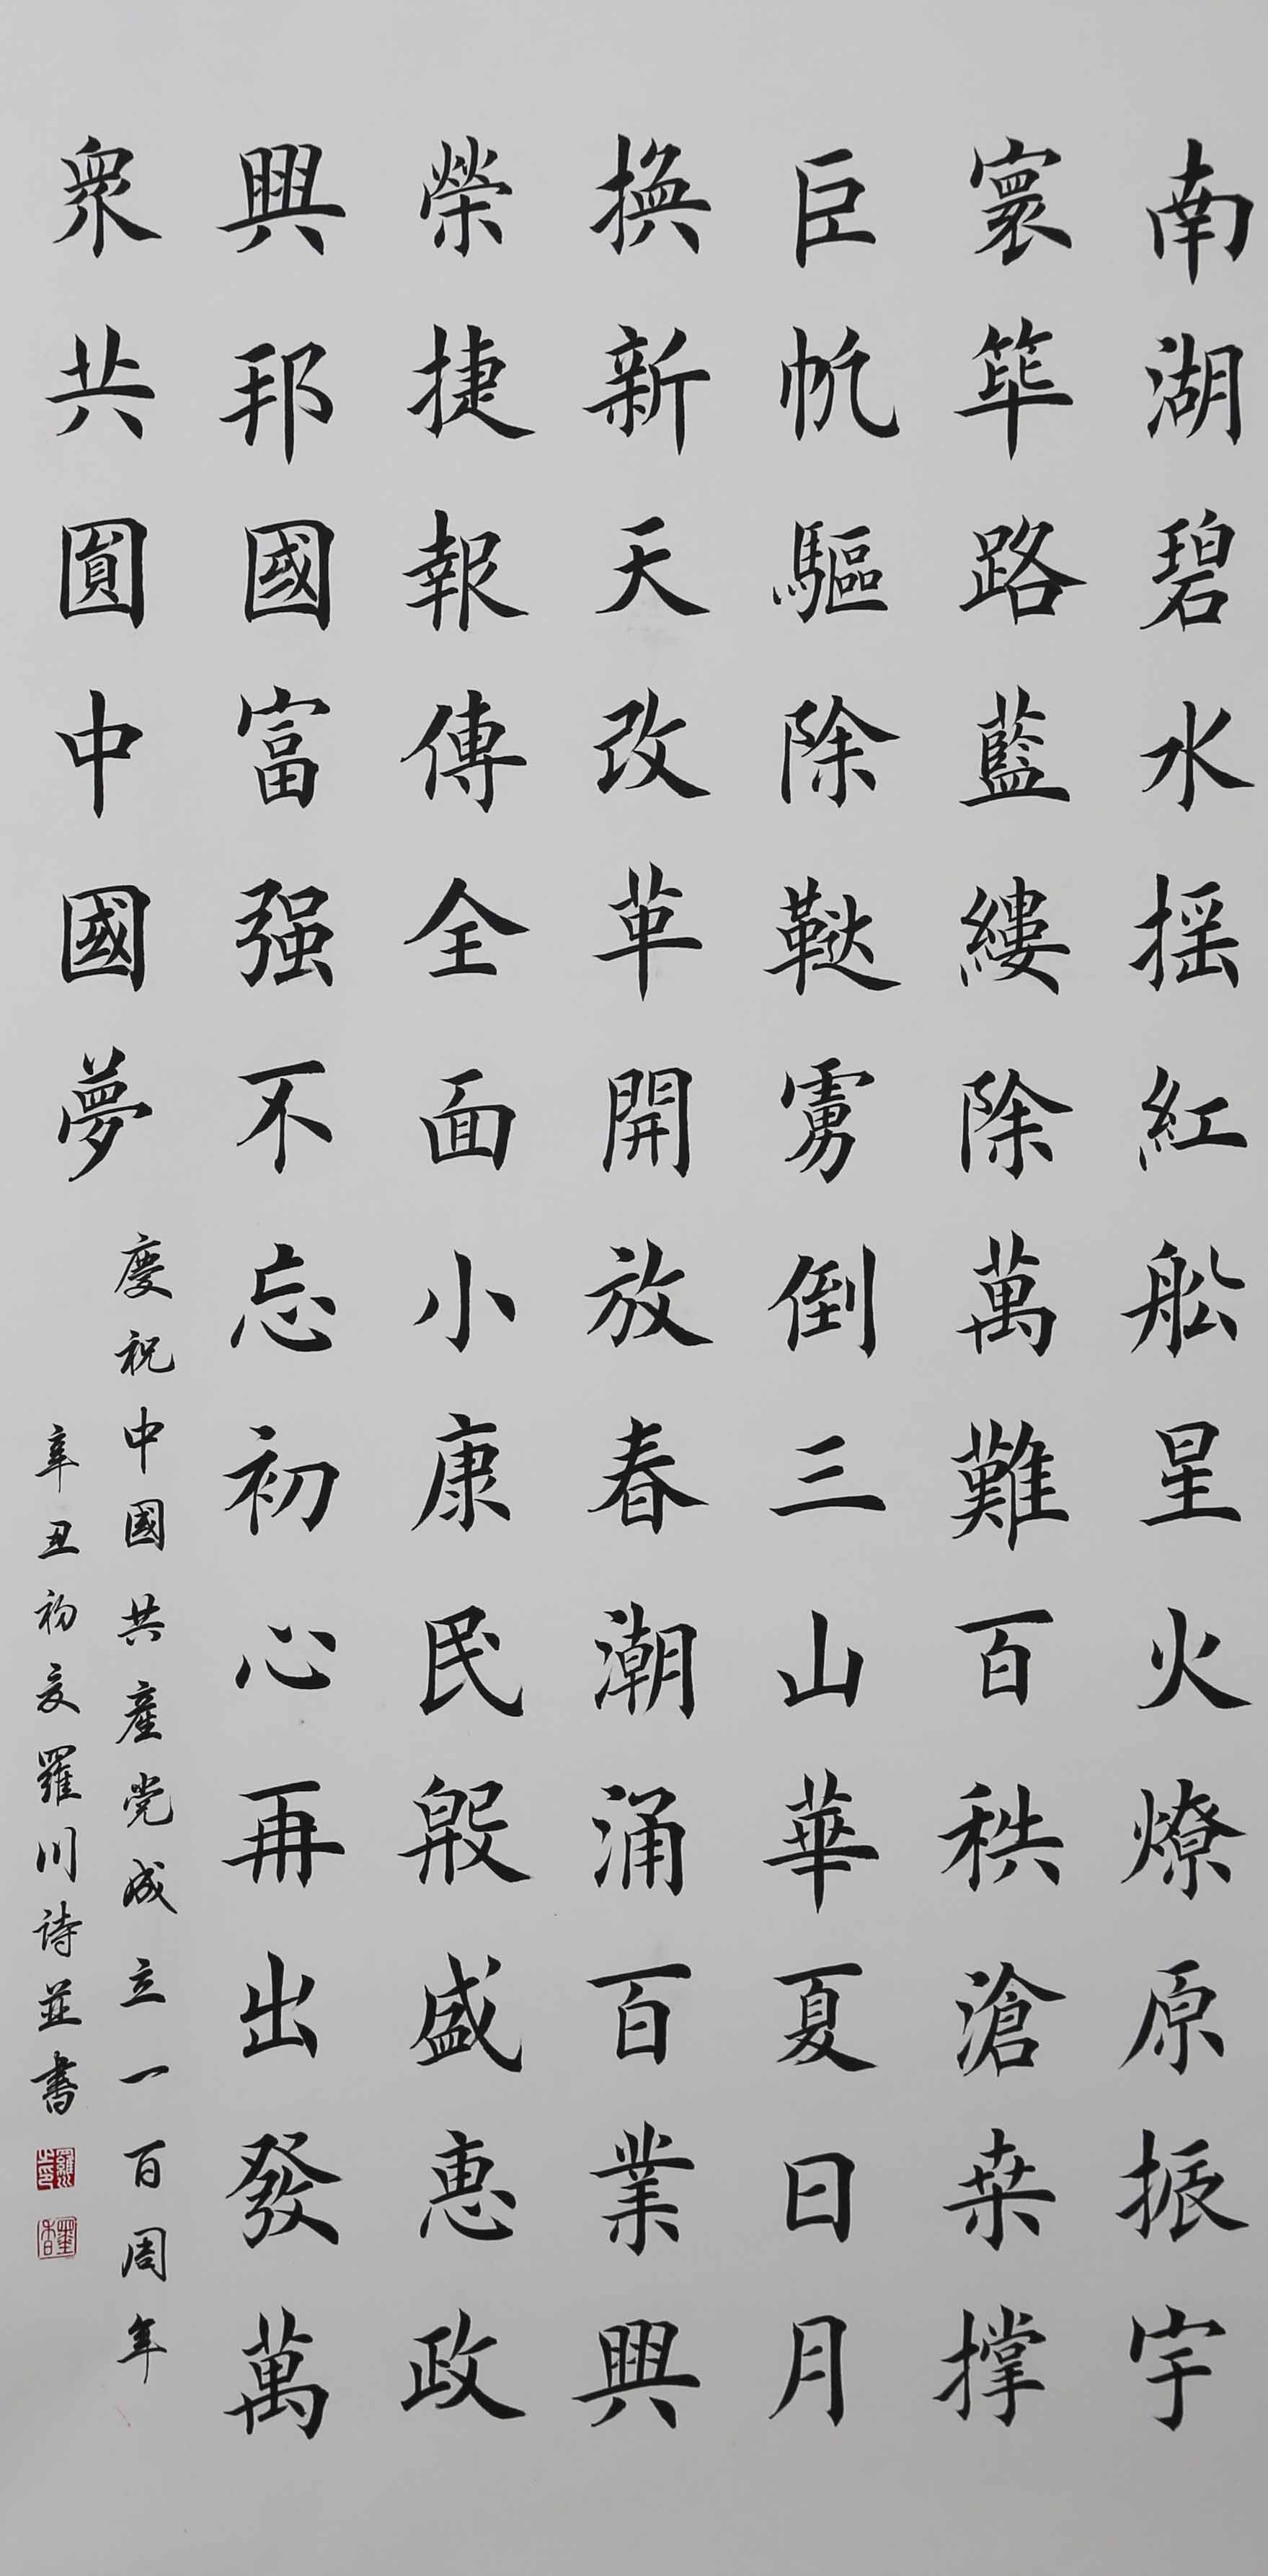 南湖碧水摇紅船星火燎原振宇
寰筚路藍縷除萬難百秩滄桒撑
巨帆驅除鞑虜倒三山華夏日月
换新天改革開放春潮涌百業興
榮捷報傳全面小康民殷盛惠政
興邦國富强不忘初心再出發萬
衆共圓中國夢
慶祝中國共產党成立一百周年
辛丑初夏羅川詩並書